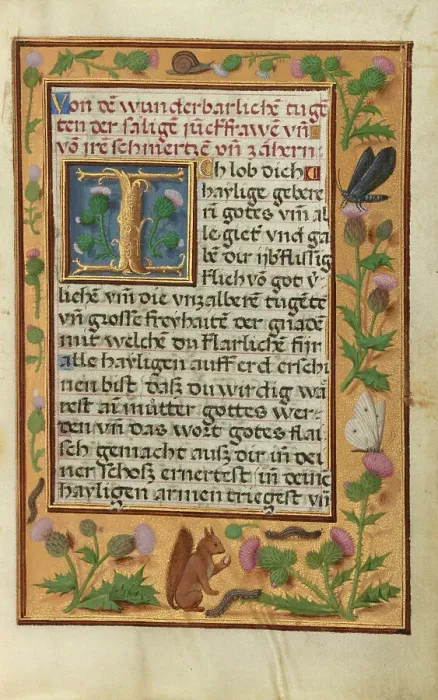 Von dē wunderbarlichē tugē
ten der säligē jūckfrawē vn̄
vō jre schmertzē vn̄ zähern:
Ich lob dich
haylige gebere
rī gotes vm̄ al
le giet vnd ga
be dir ijb'flüssig
klich vō got v'
lichē vm̄ die vnzalberē tugēte
vn̄ grosse freyhaitē der gnadē
mit welchē du klarlichē für
alle hayligen auff erd erschi
nen bist daß du wirdig wa
rest ain mütter gottes wer⸗
den vn̄ das wort gotes flai
sch gemacht auß dir in dei
ner schoß ernertest in deinē
hayligen armen triegest vn̄